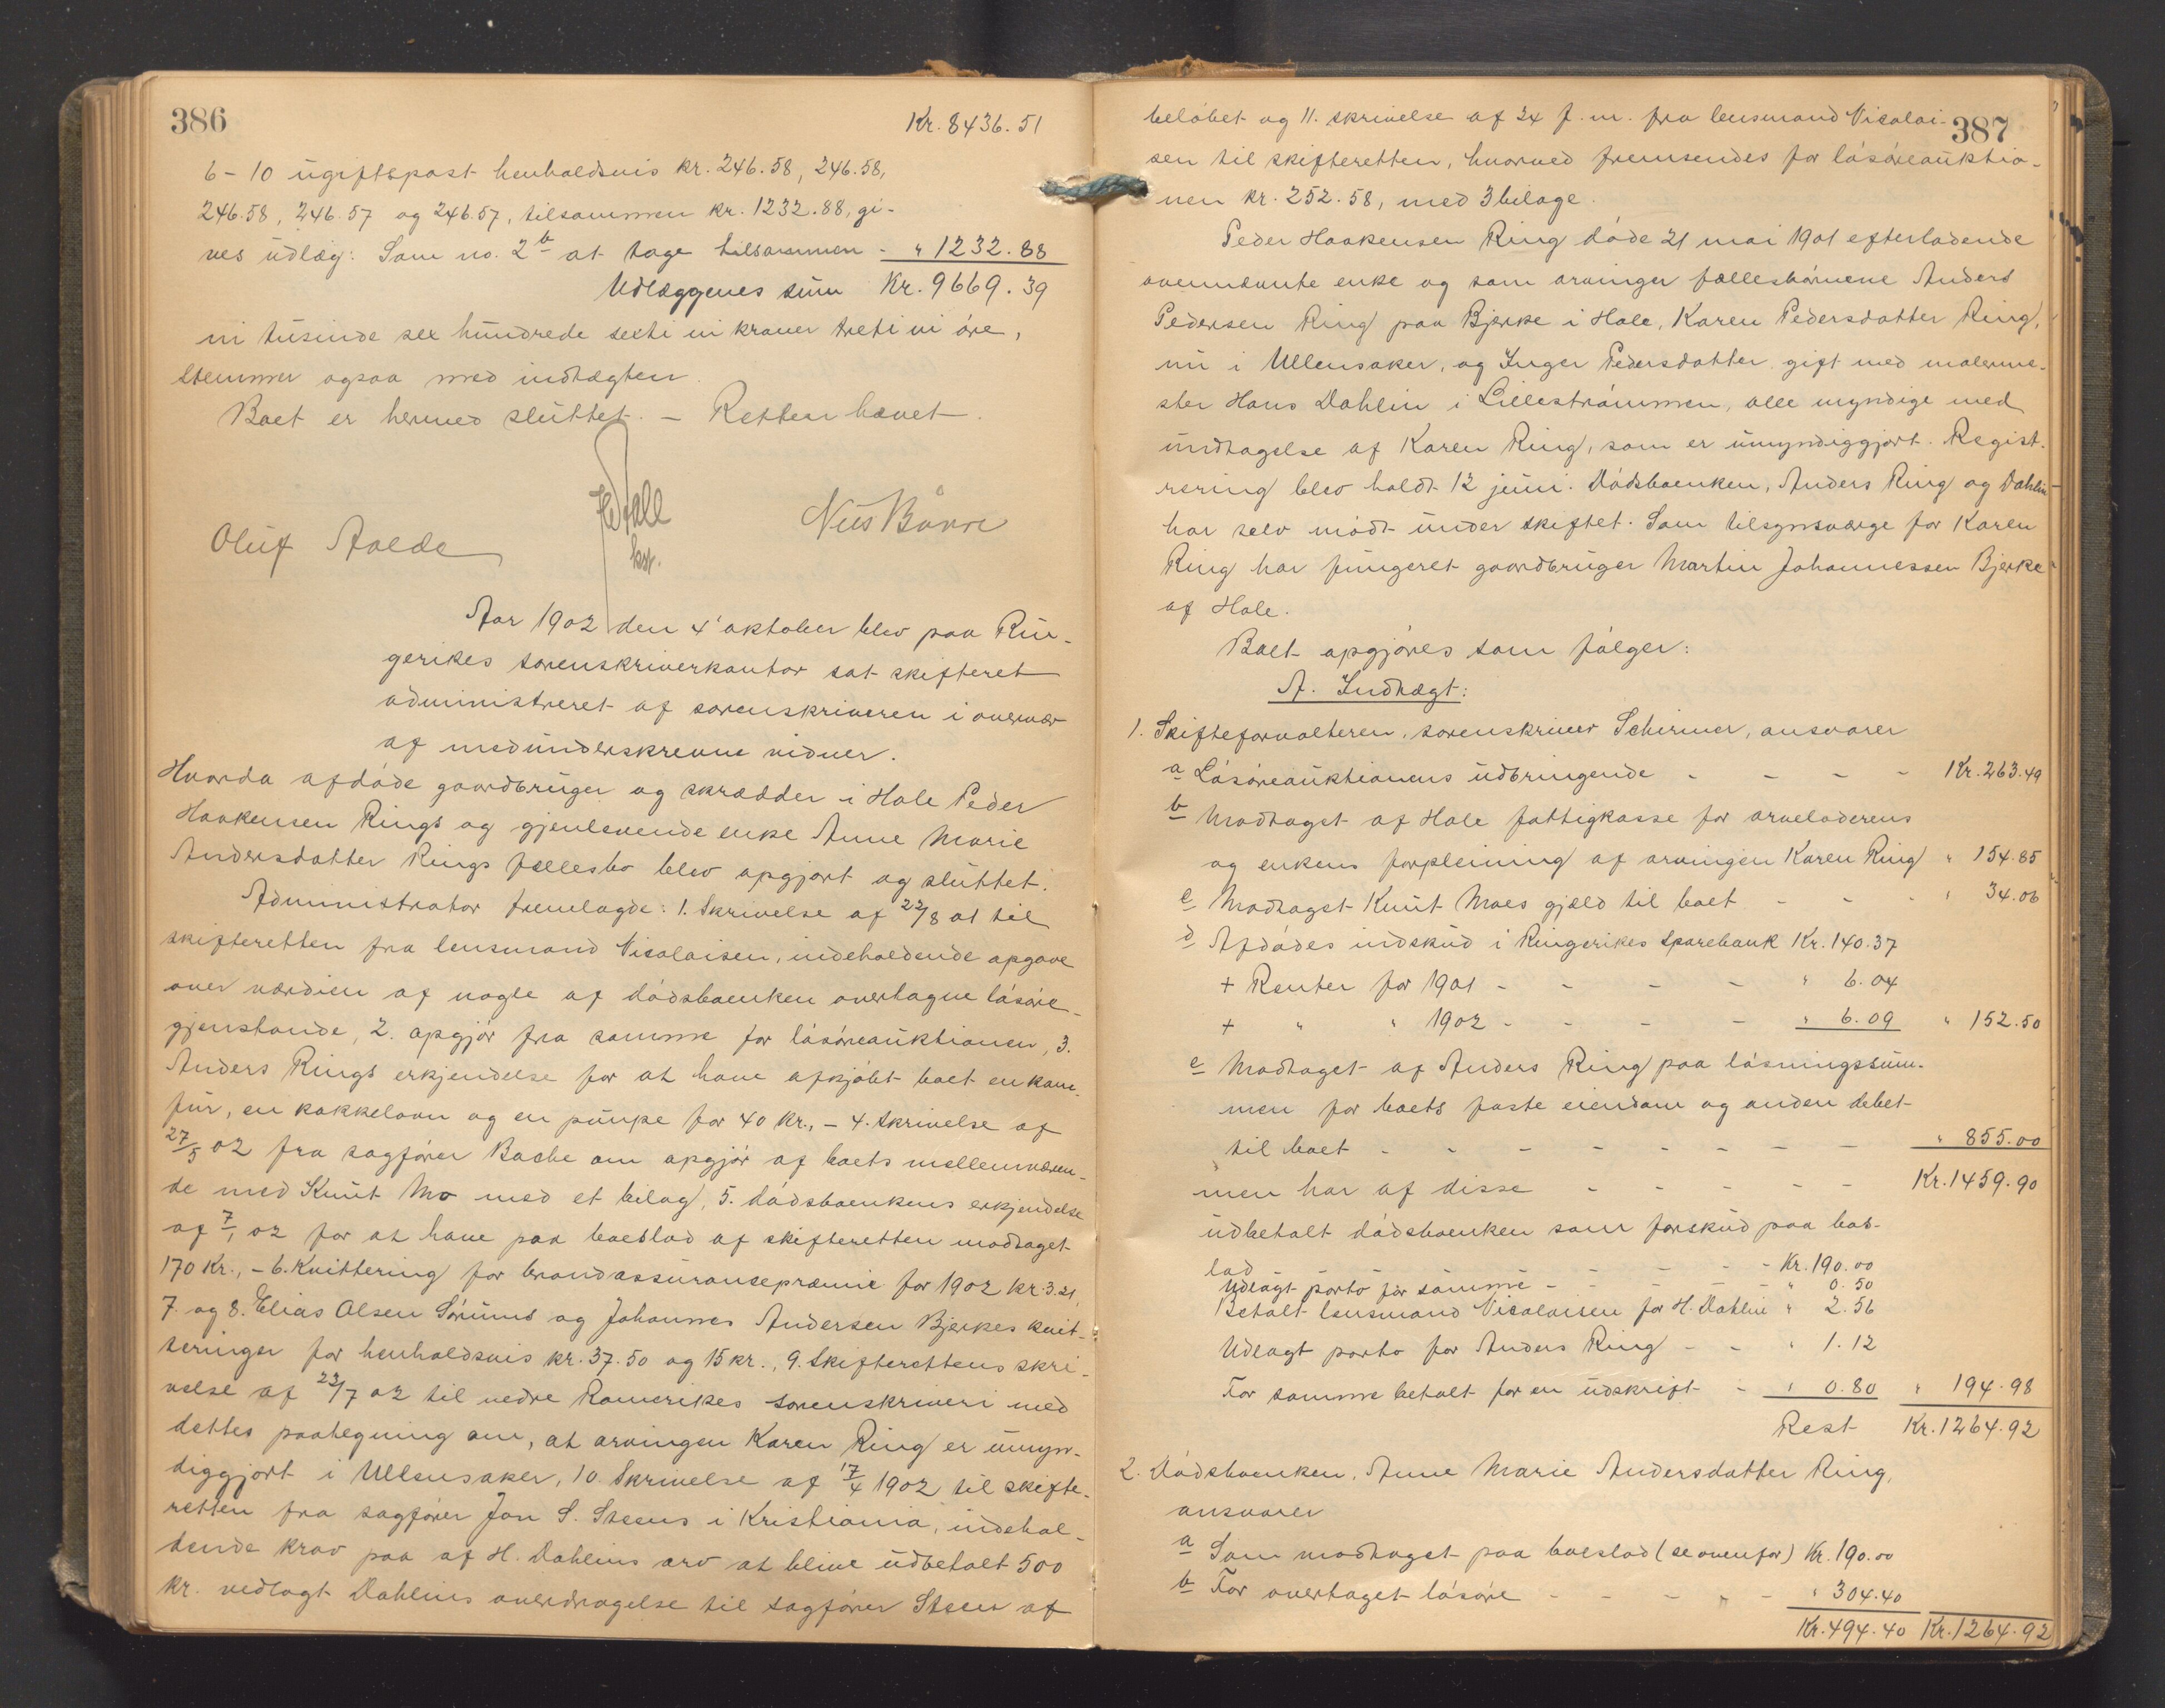 386
Kr. 8436.51
6-10 ugiftspost henholdsvis kr. 246.58, 246.58,
246.58, 246.57 og 246.57, tilsammen kr. 1232.88, gi-
ves udlæg: Som no. 2 b at tage tilsammen - " 1232.88
Udlæggenes sum Kr. 9669.39
ni tusinde sex hundrede sexti ni kroner treti ni øre,
stemmer ogsaa med indtægten.
Boet er hermed sluttet. — Retten hævet.
Oluf Aolde
Nils Bånre
Aar 1902 den 4' oktober blev paa Rin-
gerikes sorenskriverkontor sat skifteret
administreret af sorenskriveren i overvær
af medunderskrevne vidner.
Hvorda afdøde gaardbruger og skrædder i Hole Peder
Haakensen Rings og gjenlevende enke Anne Marie
Andersdatter Rings fællesbo blev opgjort og sluttet.
Administrator fremlagde: 1. Skrivelse af 22/8 01 til
skifteretten fra lensmand Nicolaisen, indeholdende opgave
over værdien af nogle af dødsboenken overtagne løsøre-
gjenstande, 2. opgjør fra samme for løsøreauktionen, 3.
Anders Rings erkjendelse for at have afkjøbt boet en kom-
fur, en kakkelovn og en pumpe for 40 kr., - 4. Skrivelse af
27/5 02 fra sagfører Bache om opgjør af boets mellemværen-
de med Knut Mo med et bilag, 5. dødsboenkens erkjendelse
af 7/1 02 for at have paa boeslod af skifteretten modtaget
170 Kr., - 6. Kvittering for brandassurancepræmie for 1902 kr. 3.21,
7. og 8. Elias Olsen Sørums og Johannes Andersen Bjerkes kvit-
teringer for henholdsvis kr. 37.50 og 15 kr., 9. Skifterettens skri-
velse af 22/7 02 til nedre Romerikes sorenskriveri med
dettes paategning om, at arvingen Karen Ring er umyn-
diggjort i Ullensaker, 10. Skrivelse af 17/4 1902 til skifte-
retten fra sagfører Jon S. Steens i Kristiania, indehol-
dende krav paa af H. Dahlins arv at blive udbetalt 500
kr. vedlagt Dahlins overdragelse til sagfører Steen af
387
beløbet og 11. skrivelse af 24 f.m. fra lensmand Nicolai-
sen til skifteretten, hvorved fremsendes for løsøreauktio-
nen kr. 252.58, med 3 bilage.
Peder Haakensen Ring døde 21 mai 1901 efterladende
ovennævnte enke og som arvinger fællesbørnene Anders
Pedersen Ring paa Bjerke i Hole, Karen Pedersdatter Ring,
nu i Ullensaker, og Inger Pedersdatter gift med malerme-
ster Hans Dahlin i Lillestrømmen, alle myndige med
undtagelse af Karen Ring, som er umyndiggjort. Regist-
rering blev holdt 12 juni. Dødsboenken, Anders Ring og Dahlin
har selv mødt under skiftet. Som tilsynsværge for Karen
Ring har fungeret gaardbruger Martin Johannessen Bjerke
af Hole.
Boet opgjøres som følger:
A. Indtægt:
1. Skifteforvalteren, sorenskriver Schirmer, ansvarer
a Løsøreauktionens udbringende - - - - Kr. 263.49
b Modtaget af Hole fattigkasse for arveladerens
og enkens forpleining af arvingen Karen Ring " 154.85
c Modtaget Knut Moes gjæld til boet - - - " 34.06
d Afdødes indskud i Ringerikes Sparebank Kr. 140.37
+ Renter for 1901 - - - - " 6.04
+ " " 1902 - - - - " 6.09 " 152.50
e Modtaget af Anders Ring paa løsningssum-
men for boets faste eiendom og anden debet
til boet - - - - - - - " 855.00
men har af disse - - - - - Kr. 1459.90
udbetalt dødsboenken som forskud paa bos-
lod - - - - Kr. 190.00
Udlagt porto for samme - - - - " 0.50
Betalt lensmand Nicolaisen for H. Dahlin " 2.56
Udlagt porto for Anders Ring - - " 1.12
For samme betalt for en udskrift - " 0.80 " 194.98
Rest Kr. 1264.92
2. Dødsboenken, Anne Marie Andersdatter Ring,
ansvarer
a Som modtaget paa boeslod (se ovenfor) Kr. 190.00
b For overtaget løsøre - - - - - " 304.40
Kr. 494.40 Kr. 1264.92